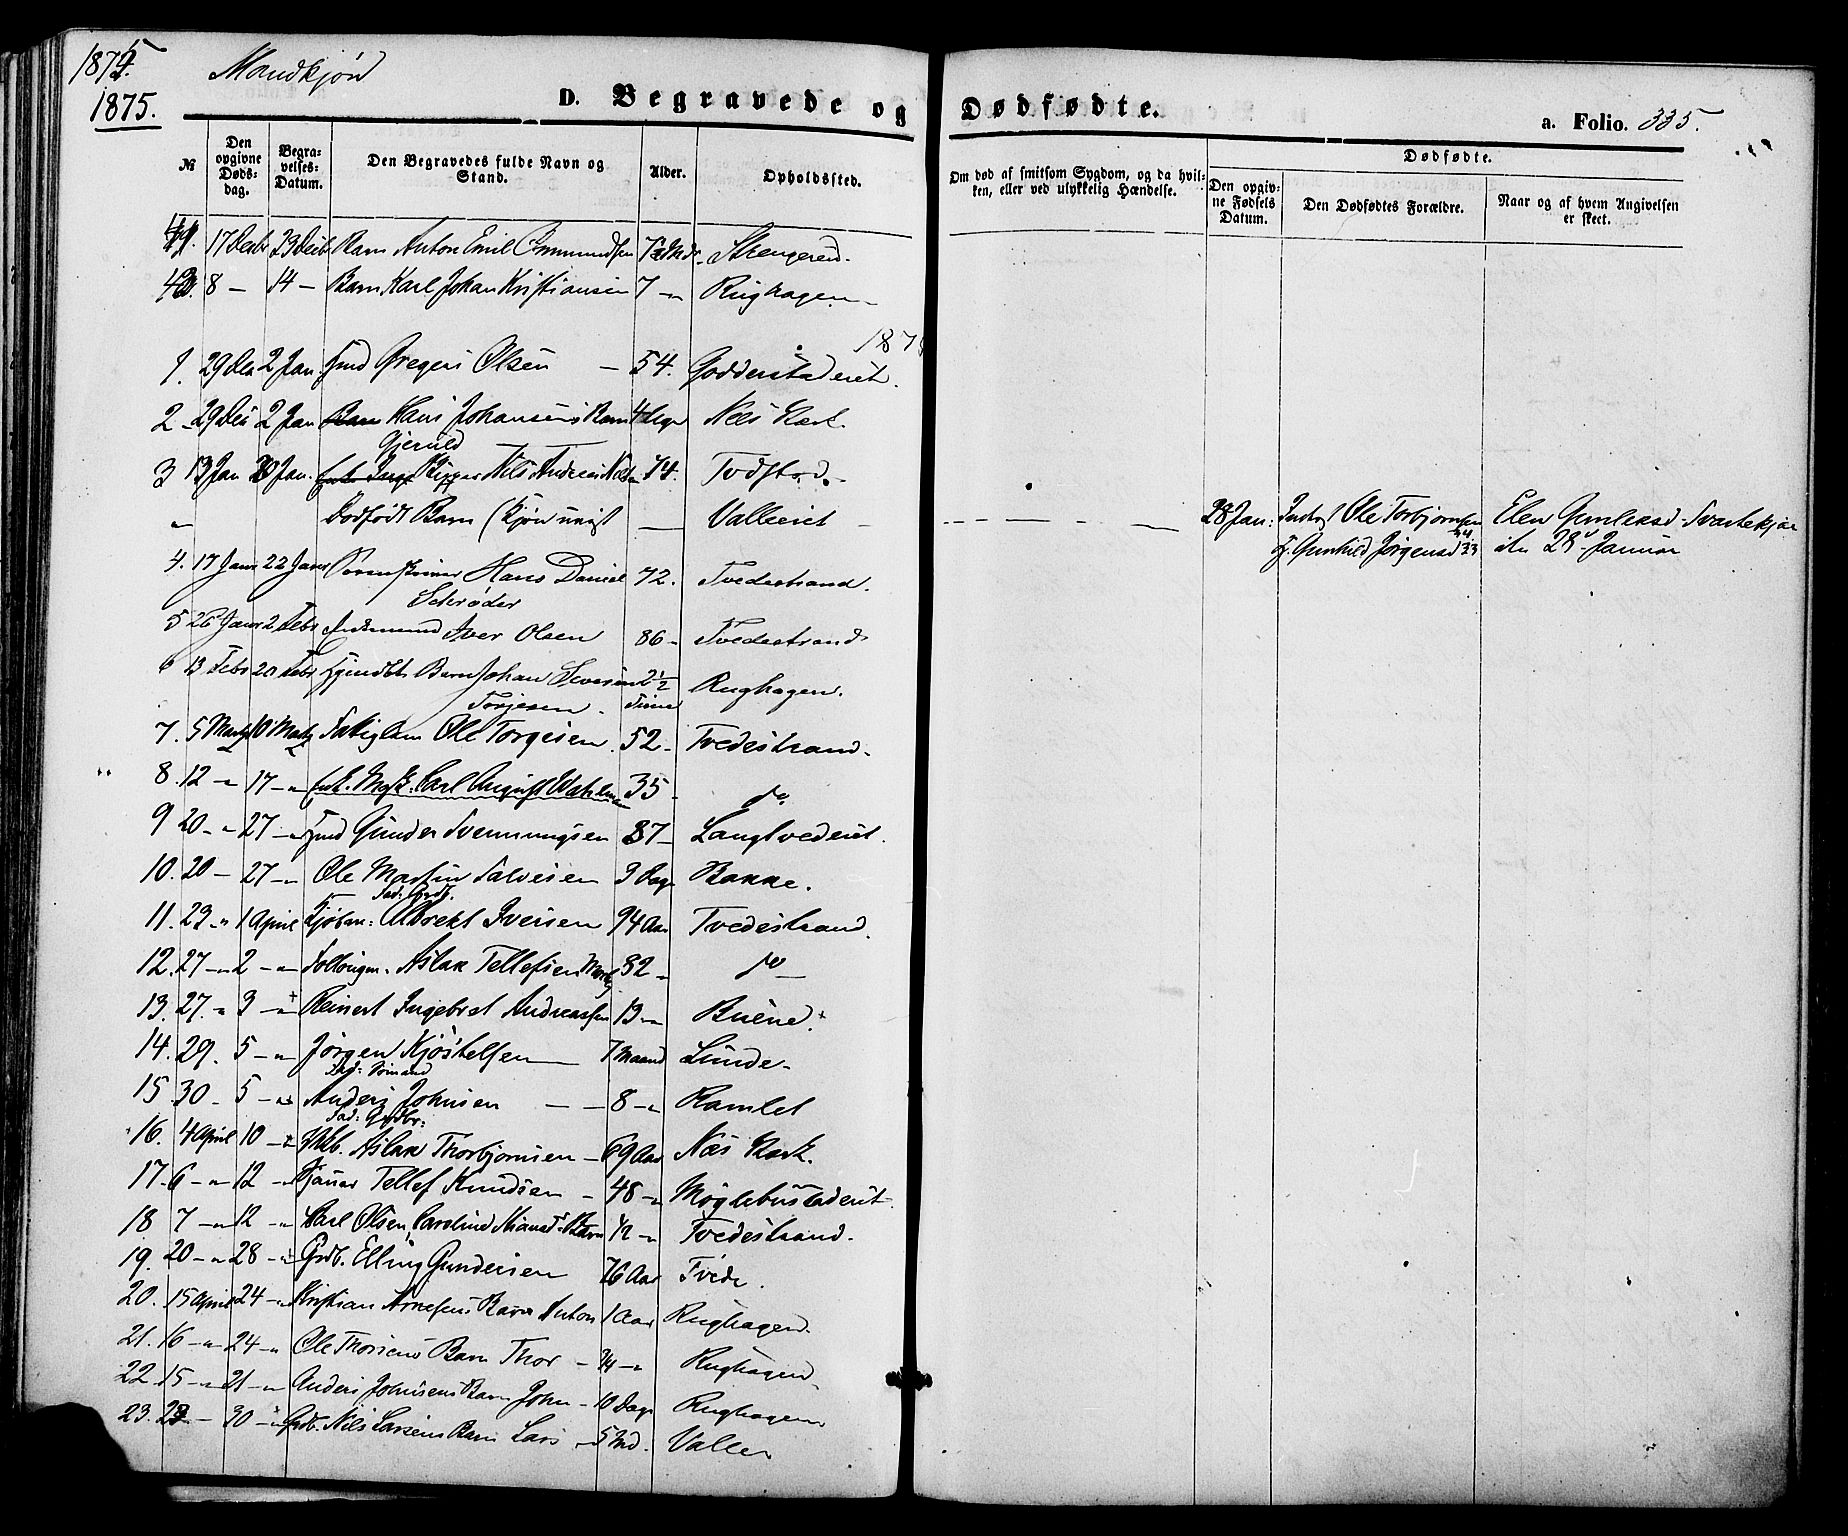 1874.
1875.
Mandkjøn
D. Begravede og Dødfødte.
a. Folio. 335.
№
Den opgivne Døds-dag.
Begra-velses-Datum.
Den Begravedes fulde Navn og Stand.
Alder.
Opholdssted.
Om død af smitsom Sygdom, og da hvil-ken, eller ved ulykkelig Hændelse.
Dødfødte.
Den opgiv-ne Fødsels Datum.
Den Dødfødtes Forældre.
Naar og af hvem Angivelsen er skeet.
17 Decbr 23 Decbr Barn Anton Emil Ommundsen Strengereid.
8 — 14 — Barn Karl Johan Kristiansen 7 -"- Rughagen
1875
1. 29 Dec 2 Jan. Gmd Gregers Olsen — 54. Godderstaderiet.
2 29 Dec 2 Jan Barn Hans Johansens Barn 4 Dage Næs Værk.
Gjerulf
3 13 Jan 20 Jan. Nils Andreas 74.
" Dødfødt Barn (kjøn uvist — Valleriet
28 Jan: Ole Torbjørnsen Elen Gunleksd. Svartekjær
f. Gunhild Jørgensd itu 28 Januar
4. 17 Janr 22 Janr Hans Daniel 72. Tvedestrand.
Schrøder
5 26 Janr 2 Febr Iver Olsen 86 - Tvedestrand
6 13 Febr 20 Febr Barn Johan Severin 2 1/2 Rughagen.
Torjesen. Timer
7. 5 Marts 10 Marts Fattiglem Ole Torgersen 52 - Tvedestrand.
8. 12 -"- 17 -"- Carl August 35 - do.
9 20 -"- 27 -"- Gmd Gunder Svennungsen 87 — Langtvederiet.
10. 20 — 27 -"- Ole Martin Salvesen 3 Dage Bakke.
11. 23 -"- 1 April Albrekt Iversen 94 Aar Tvedestrand.
12. 27 -"- 2 -"- Aslak Tellefsen 82 - do —
13. 27. -"- 3 -"- Reinert Ingebret Andreassen 13 -"-
14. 29. 5 -"- Jørgen Kjøstelsen — 7 Maaned Lunde -
15 30 - 5 -"- Anders Johnsen — 8 -"- Ramlet
16. 4 April 10 -"- Aslak Thorbjørnsen — 69 Aar Næs Værk.
17. 6 -"- 12 -"- Tellef Knudsen - 48 -"- Møglebustaderiet.
18 7 -"- 12 -"- Karl Olsen, Barn ½ -"- Tvedestrand.
19. 20 -"- 28 -"- Grdb. Elling Gundersen 76 Aar Tvede.
20. 15 April 24 -"- Kristian Arnesens Barn Anton 1 Aar Rughagen.
21. 16 -"- 24 -"- Ole Thorsens Barn Thor - ¼ -"- Rughagen.
22. 15 -"- 21 -"- Anders Johnsens Barn John - 10 Dage Rughagen
23. 23 - 30 -"- Grdb. Nils Larsens Barn Lars - 5 Md. Valle